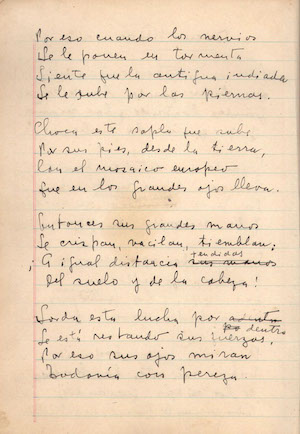 Por eso cuando los nervios
Se le ponen en tormenta
Siente que la antigua indiada
Se le sube por las piernas.
Choca este soplo que sube
Por sus pies, desde la tierra,
Con el mosaico europeo
Que en los grandes ojos lleva.
Entonces sus grandes manos
Se crispan, vacilan, tiemblan;
¡A igual distancia tendidas sus manos
del suelo y de la cabeza!
Sorda esta lucha por adentro
por dentro
Le está restando sus fuerzas.
Por eso sus ojos miran
Todavía con pereza.